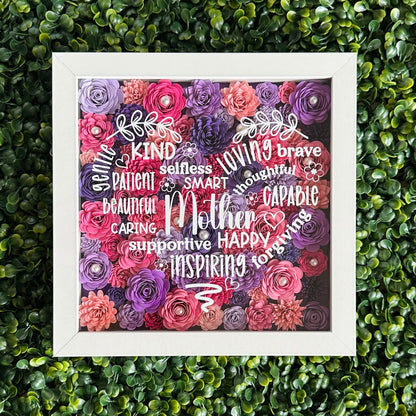 gentle KIND LOVING brave
selfless
PATIENT SMART thoughtful
BEAUTIFUL Mother CAPABLE
CARING
supportive HAPPY forgiving
INSPIRING